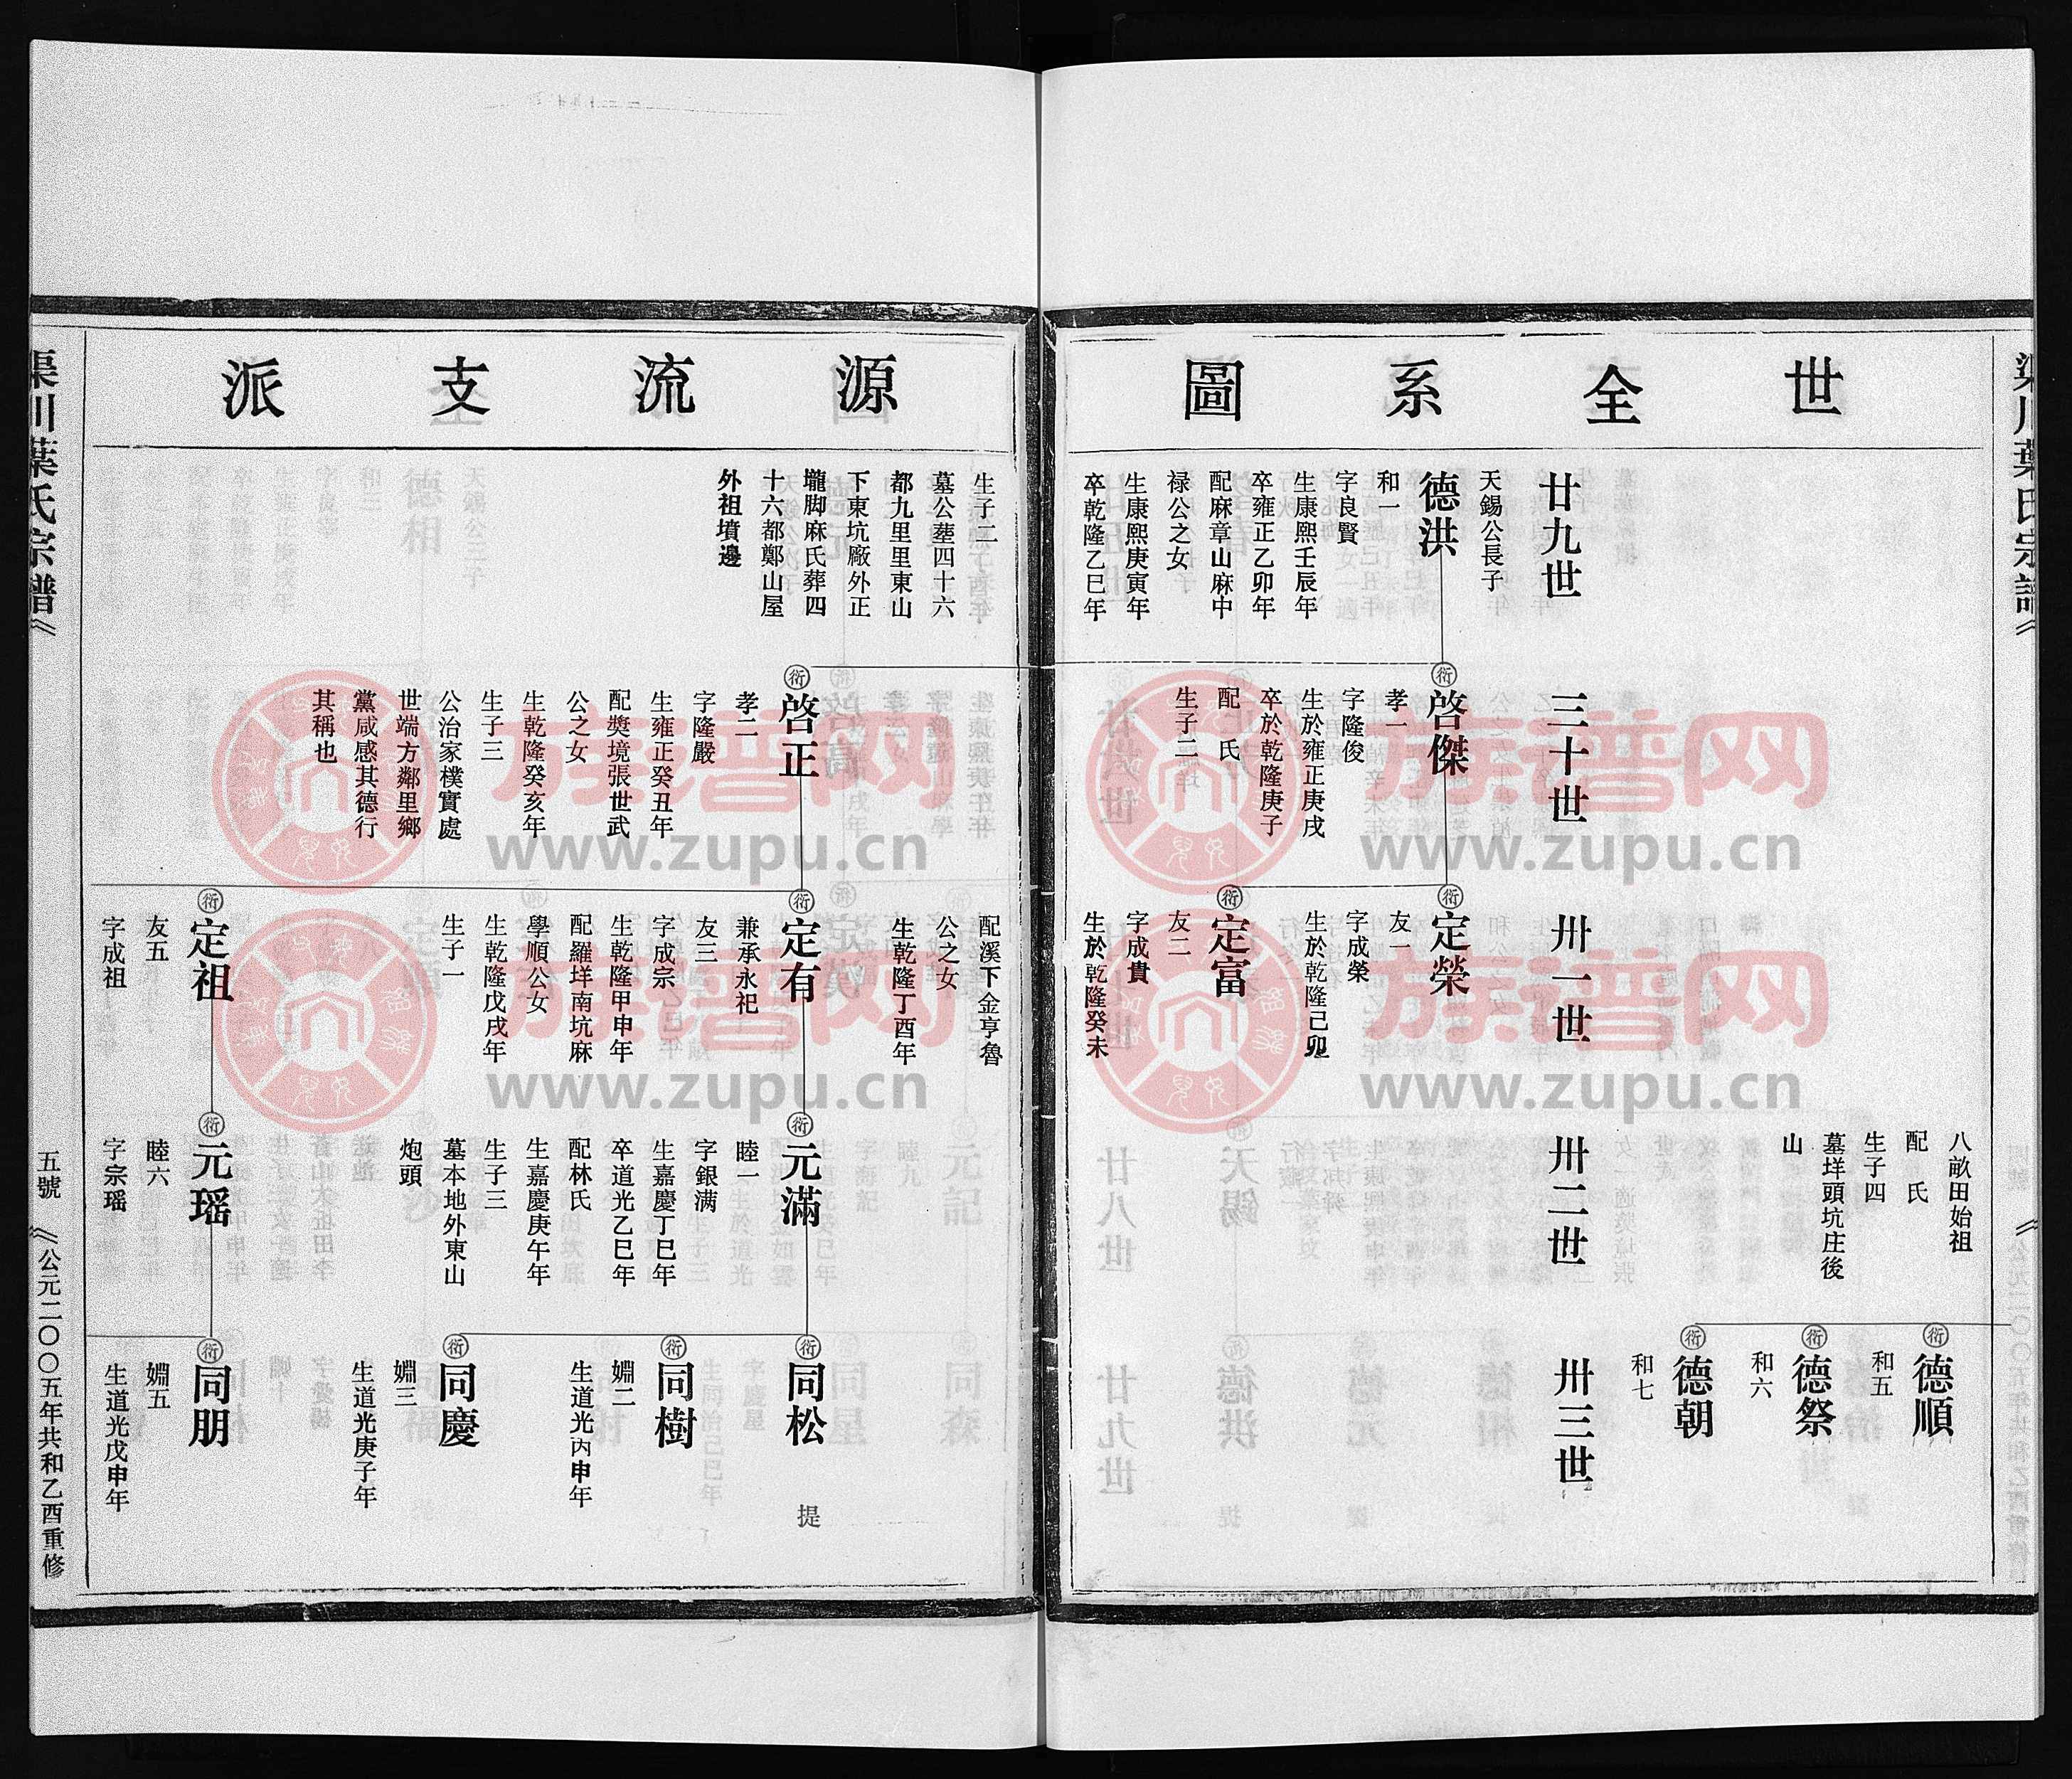 世全系圖
渠川葉氏宗譜
八畝田始祖
配 氏
生子四
墓垟頭坑庄後
山
德順
和五
德祭
和六
德朝
和七
廿九世
三十世
卅一世
卅二世
卅三世
天錫公長子
德洪
和一
字良賢
生康熙壬辰年
卒雍正乙卯年
配麻章山麻中
禄公之女
生康熙庚寅年
卒乾隆乙巳年
衍
啓傑
孝一
字隆俊
生於雍正庚戌
卒於乾隆庚子
配 氏
生子二
衍
定榮
友一
字成榮
生於乾隆己卯
衍
定富
友二
字成貴
生於乾隆癸未
源流支派
生子二
墓公塟四十六
都九里里東山
下東坑廠外正
壠脚麻氏葬四
十六都鄭山屋
外祖墳邊
衍
啓正
孝二
字隆嚴
生雍正癸丑年
配獎境張世武
公之女
生乾隆癸亥年
生子三
公治家樸實處
世端方鄰里鄉
黨咸感其德行
其稱也
配溪下金亨魯
公之女
生乾隆丁酉年
衍
定有
兼承永祀
友三
字成宗
生乾隆甲申年
配羅垟南坑麻
學順公女
生乾隆戊戌年
生子一
衍
定祖
友五
字成祖
衍
元滿
睦一
字銀满
生嘉慶丁巳年
卒道光乙巳年
配林氏
生嘉慶庚午年
生子三
墓本地外東山
炮頭
衍
元瑶
睦六
字宗瑶
衍
同松
提
衍
同樹
婣二
生道光丙申年
衍
同慶
婣三
生道光庚子年
衍
同朋
婣五
生道光戊申年
渠川葉氏宗譜
五號
公元二〇〇五年共和乙酉重修
族谱网
www.zupu.cn
族谱网
www.zupu.cn
族谱网
www.zupu.cn
族谱网
www.zupu.cn